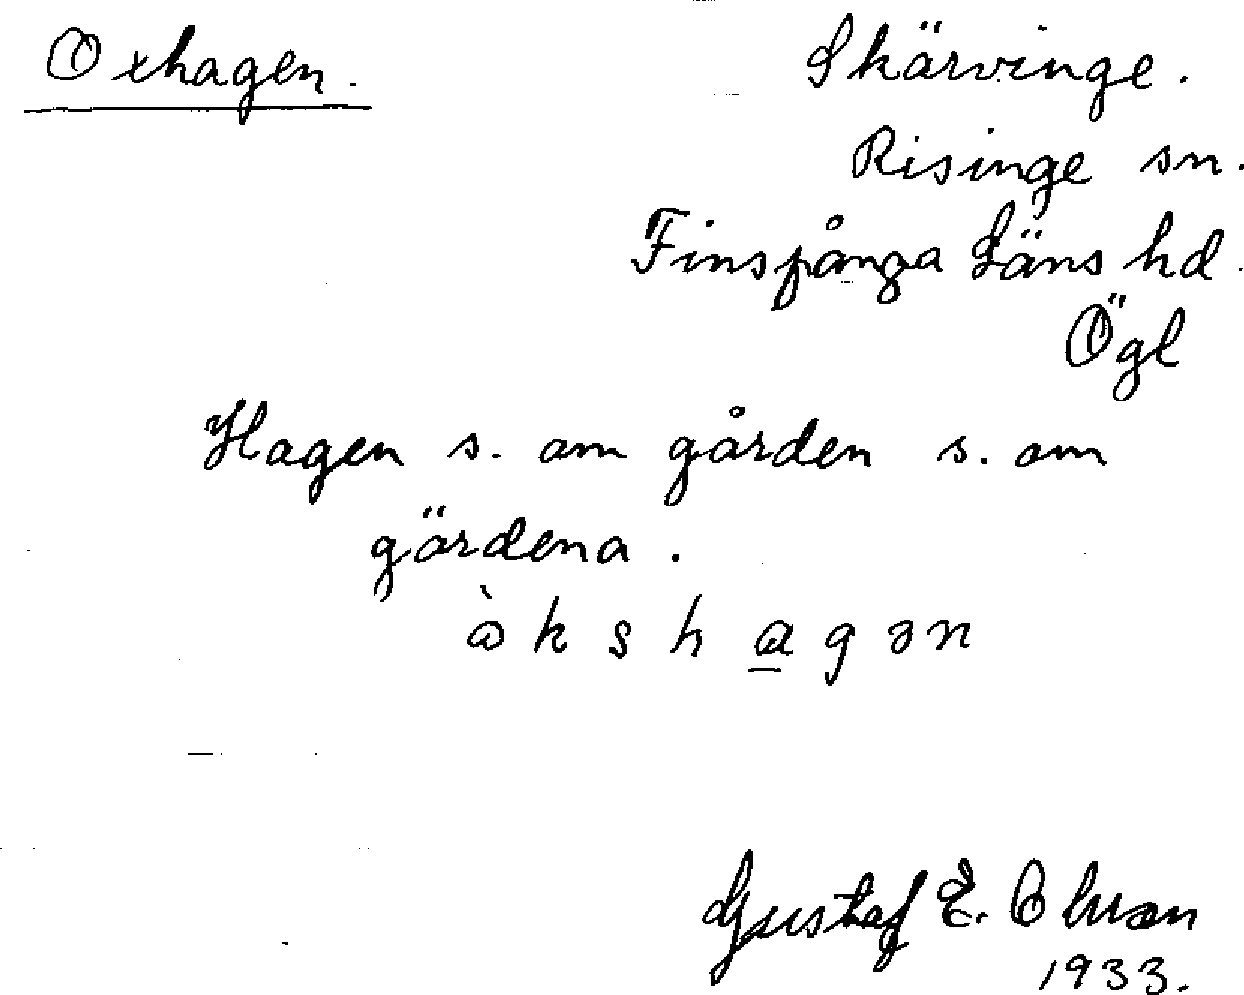 Oxhagen.
Skärvinge.
Risinge sn.
Finspånga Läns hd.
Ögl
Hagen s. om gården s. om
gärdena.
òkshagən
Gustaf E.
1933.